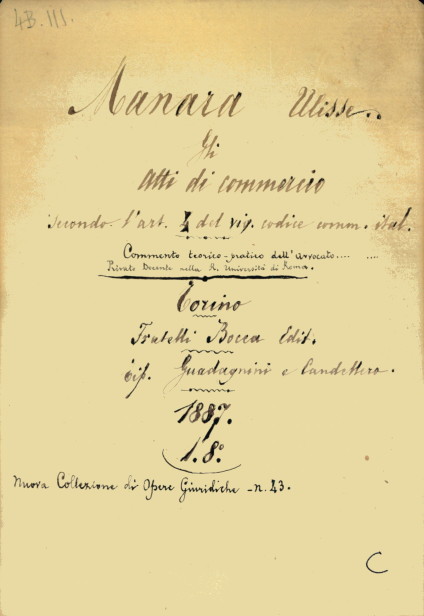 4B. III.
Manara Ulisse..
Gli
Atti di commercio
secondo l'art. 4 del vig. codice comm. ital.
Commento teorico-pratico dell'avvocato.... ....
Privato Docente nella R. Università di Roma.
Torino
Fratelli Bocca Edit.
tip. Guadagnini e Candellero.
1887.
1. 8°
Nuova Collezione di Opere Giuridiche - n. 43.
C